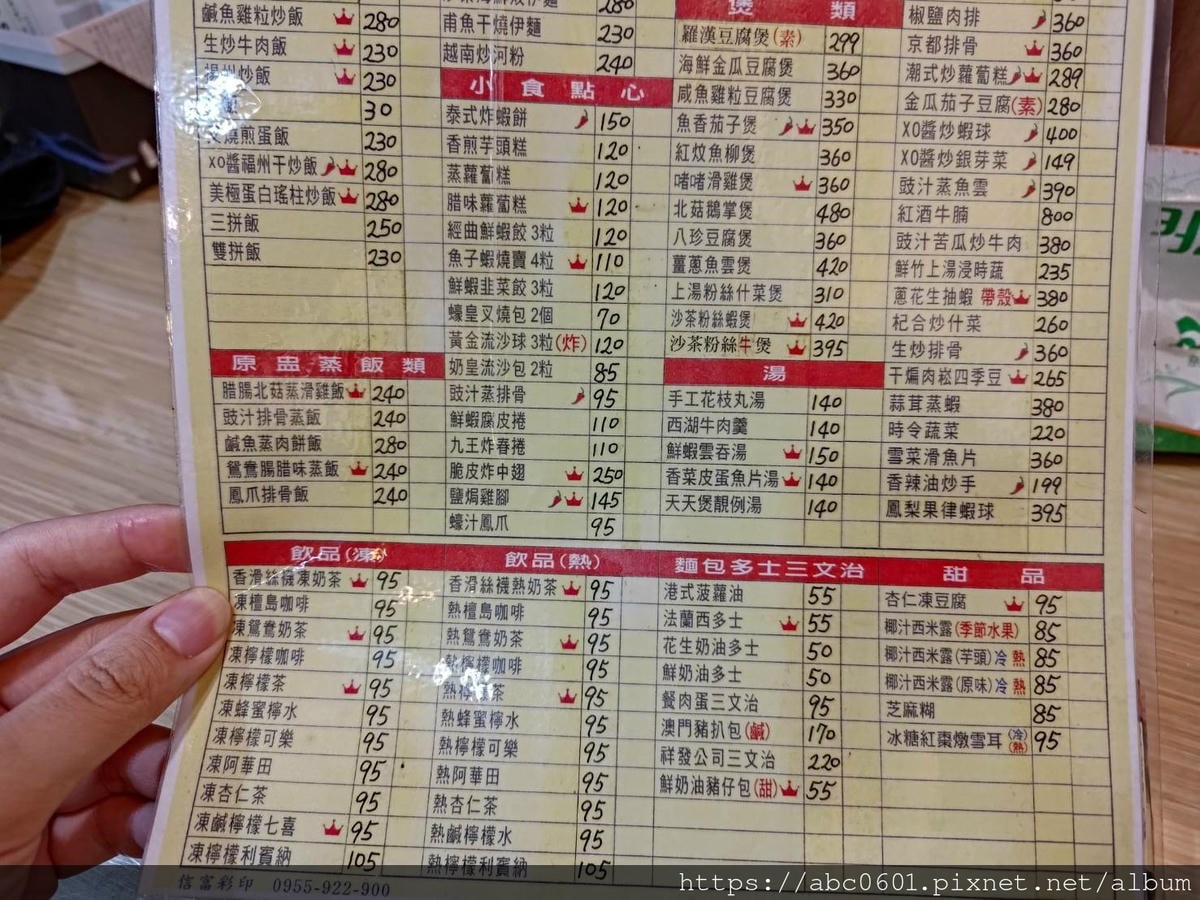 鹹魚雞粒炒飯 280
生炒牛肉飯 230
揚州炒飯 230
30
叉燒煎蛋飯 230
XO醬福州干炒飯 280
美極蛋白瑤柱炒飯 280
三拼飯 250
雙拼飯 230
原盅蒸飯類
腊腸北菇蒸滑雞飯 240
豉汁排骨蒸飯 240
鹹魚蒸肉餅飯 280
鴛鴦腸腊味蒸飯 240
鳳爪排骨飯 240
280
甫魚干燒伊麵 230
越南炒河粉 240
小食點心
泰式炸蝦餅 150
香煎芋頭糕 120
蒸蘿蔔糕 120
腊味蘿蔔糕 120
經曲鮮蝦餃 3粒 120
魚子蝦燒賣 4粒 110
鮮蝦韭菜餃 3粒 120
蠔皇叉燒包 2個 70
黃金流沙球 3粒(炸) 120
奶皇流沙包 2粒 85
豉汁蒸排骨 95
鮮蝦腐皮捲 110
九王炸春捲 110
脆皮炸中翅 250
鹽焗雞腳 145
蠔汁鳳爪 95
煲類
羅漢豆腐煲(素) 299
海鮮金瓜豆腐煲 360
咸魚雞粒豆腐煲 330
魚香茄子煲 350
紅炆魚柳煲 360
啫啫滑雞煲 360
北菇鵝掌煲 480
八珍豆腐煲 360
薑蔥魚雲煲 420
上湯粉絲什菜煲 310
沙茶粉絲蝦煲 420
沙茶粉絲牛煲 395
湯
手工花枝丸湯 140
西湖牛肉羹 140
鮮蝦雲吞湯 150
香菜皮蛋魚片湯 140
天天煲靚例湯 140
椒鹽肉排 360
京都排骨 360
潮式炒蘿蔔糕 289
金瓜茄子豆腐(素) 280
XO醬炒蝦球 400
XO醬炒銀芽菜 149
豉汁蒸魚雲 390
紅酒牛腩 800
豉汁苦瓜炒牛肉 380
鮮竹上湯浸時蔬 235
蔥花生抽蝦 帶殼 380
杞合炒什菜 260
生炒排骨 360
干煸肉崧四季豆 265
蒜茸蒸蝦 380
時令蔬菜 220
雪菜滑魚片 360
香辣油炒手 199
鳳梨果律蝦球 395
飲品(凍)
香滑絲襪凍奶茶 95
凍檀島咖啡 95
凍鴛鴦奶茶 95
凍檸檬咖啡 95
凍檸檬茶 95
凍蜂蜜檸水 95
凍檸檬可樂 95
凍阿華田 95
凍杏仁茶 95
凍鹹檸檬七喜 95
凍檸檬利賓納 105
飲品(熱)
香滑絲襪熱奶茶 95
熱檀島咖啡 95
熱鴛鴦奶茶 95
熱檸檬咖啡 95
熱檸檬茶 95
熱蜂蜜檸水 95
熱檸檬可樂 95
熱阿華田 95
熱杏仁茶 95
熱鹹檸檬水 95
熱檸檬利賓納 105
麵包多士三文治
港式菠蘿油 55
法蘭西多士 55
花生奶油多士 50
鮮奶油多士 50
餐肉蛋三文治 95
澳門豬扒包(鹹) 170
祥發公司三文治 220
鮮奶油豬仔包(甜) 55
甜品
杏仁凍豆腐 95
椰汁西米露(季節水果) 85
椰汁西米露(芋頭) 冷 熱 85
椰汁西米露(原味) 冷 熱 85
芝麻糊 85
冰糖紅棗燉雪耳(冷熱) 95
信富彩印 0955-922-900
https://abc0601.pixnet.net/album